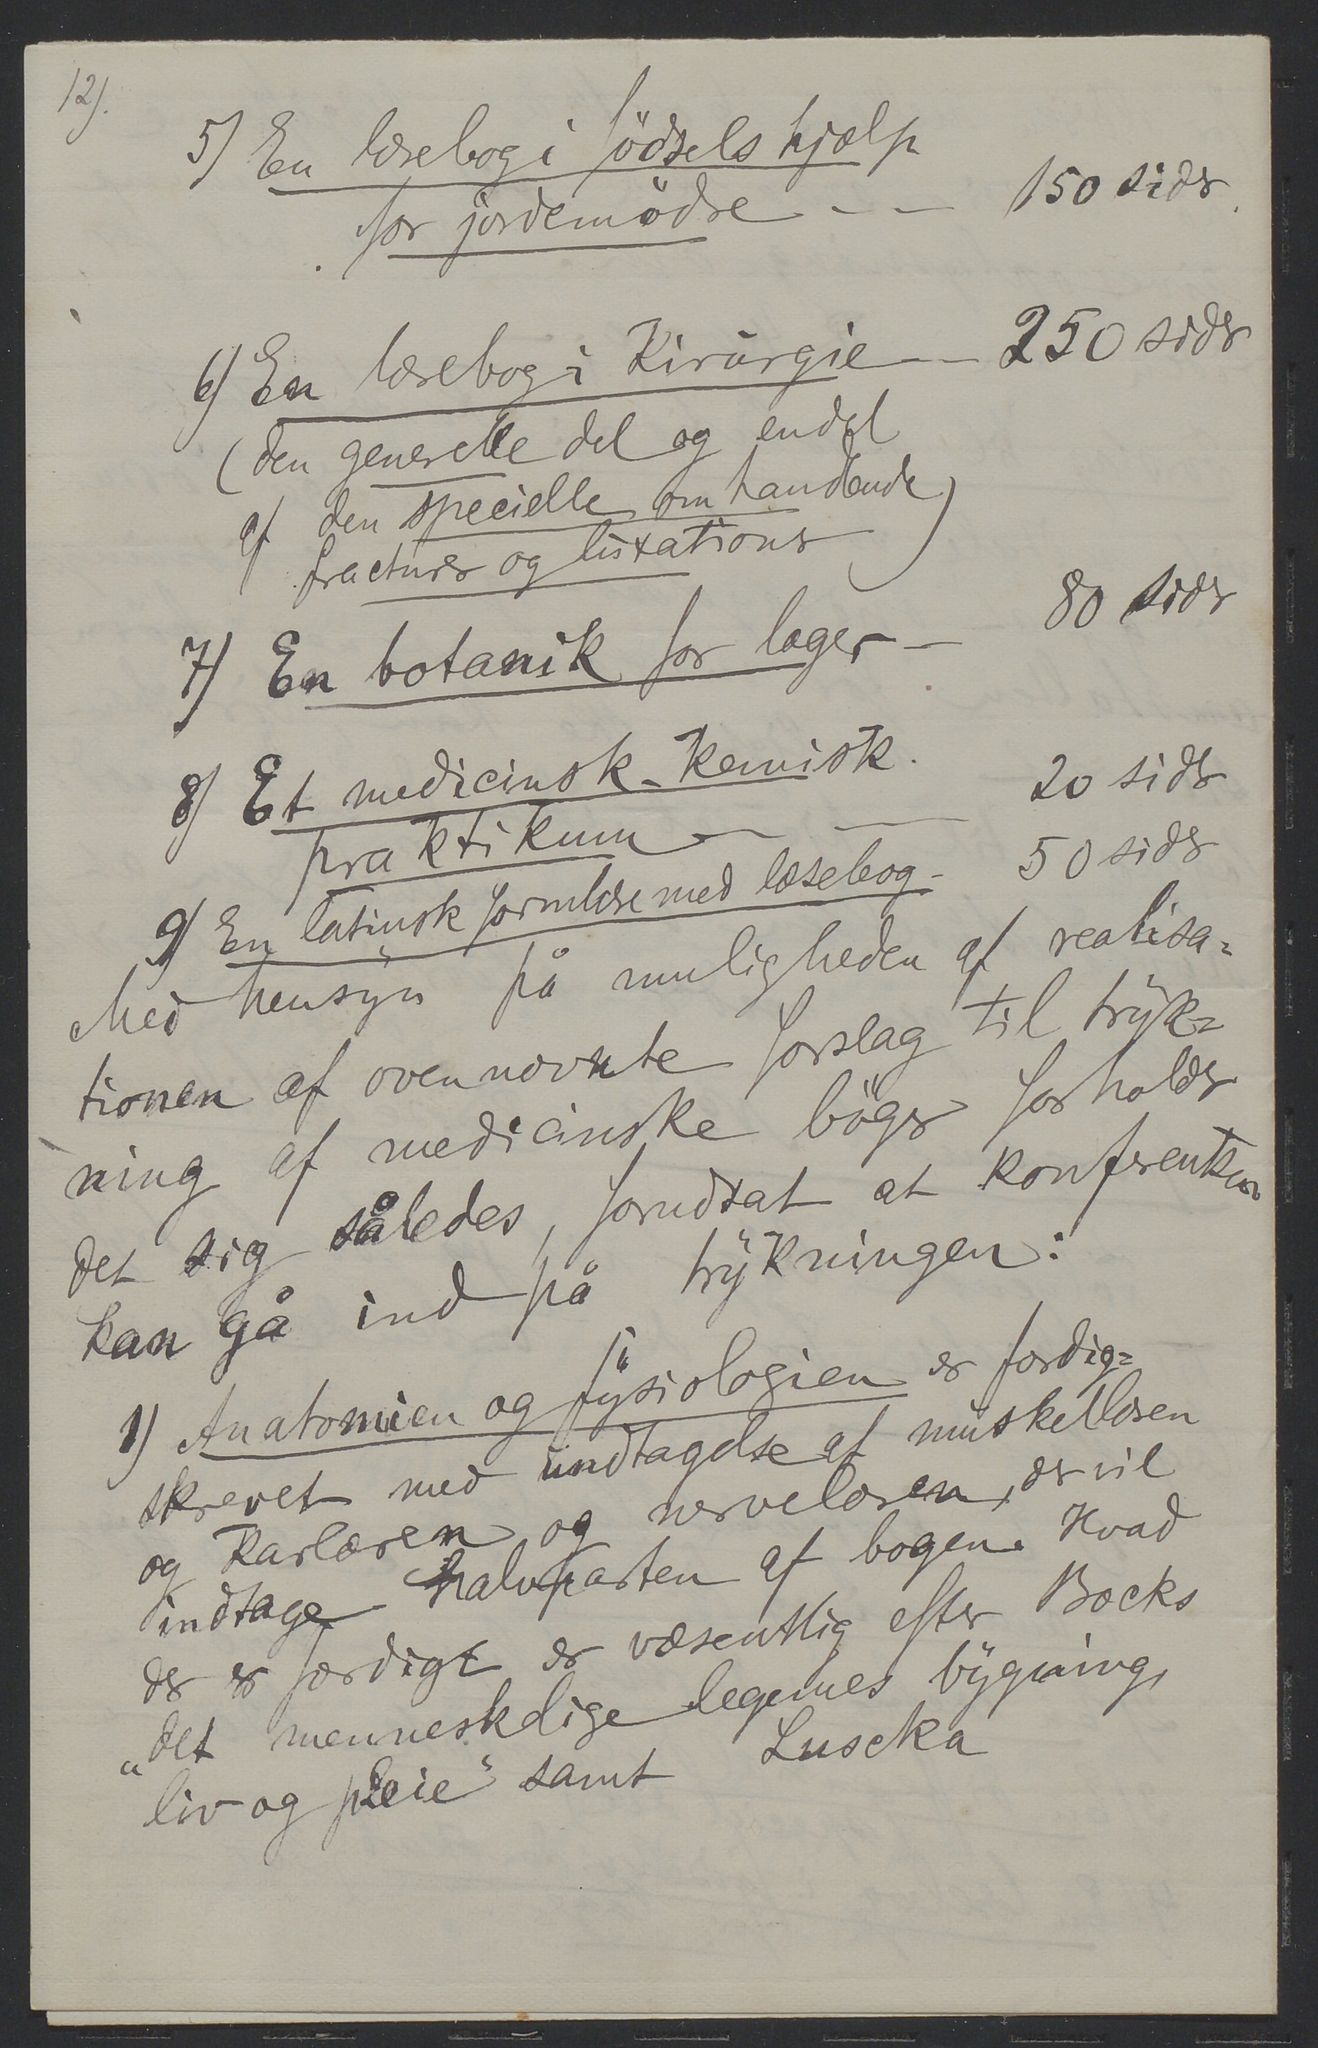 12).
5) En lærebog i födselshjælp
for jordemödre - - 150 sider.
6) En lærebog i Kirurgie - 250 sider
(den generelle del og endel
af den specielle omhandlende
fracturer og luxationer)
7) En botanik for læger - 80 sider
8) Et medicinsk-kemisk
praktikum - - 20 sider
9) En latinsk formlære med læsebog - 50 sider
Med hensyn på muligheden af realisa=
tionen af ovennævnte forslag til tryk=
ning af medicinske böger forholder
det sig således, forudsat at konferentsen
kan gå ind på trykningen:
1) Anatomien og fysiologien er færdig=
skrevet med undtagelse af muskellæren
og karlæren og nervelæren, der vil
indtage halvparten af bogen. Hvad
der er færdigt er væsentlig efter Bocks
"det menneskelige legemes bygning,
liv og pleie" samt Luscka